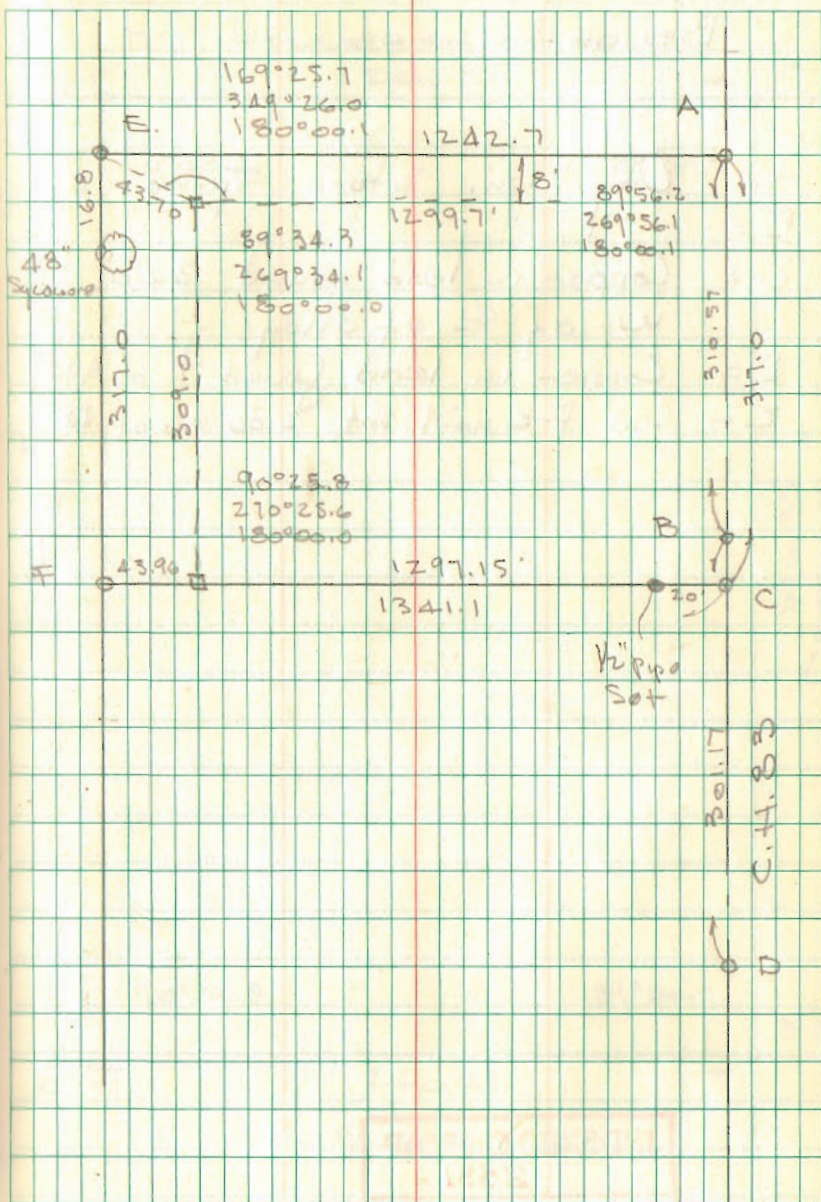 169°25.7
349°26.0
180°00.1
E.
A
1242.7
43.70
8'
1299.7'
89°56.2
269°56.1
180°00.1
16.8
48"
Sycamore
89°34.3
269°34.1
180°00.0
317.0
309.0'
310.57
317.0
90°25.8
270°25.6
180°00.0
B
F
43.96
1297.15'
20'
C
1341.1
1/2" pipe
Set
301.17
C.H.83
D